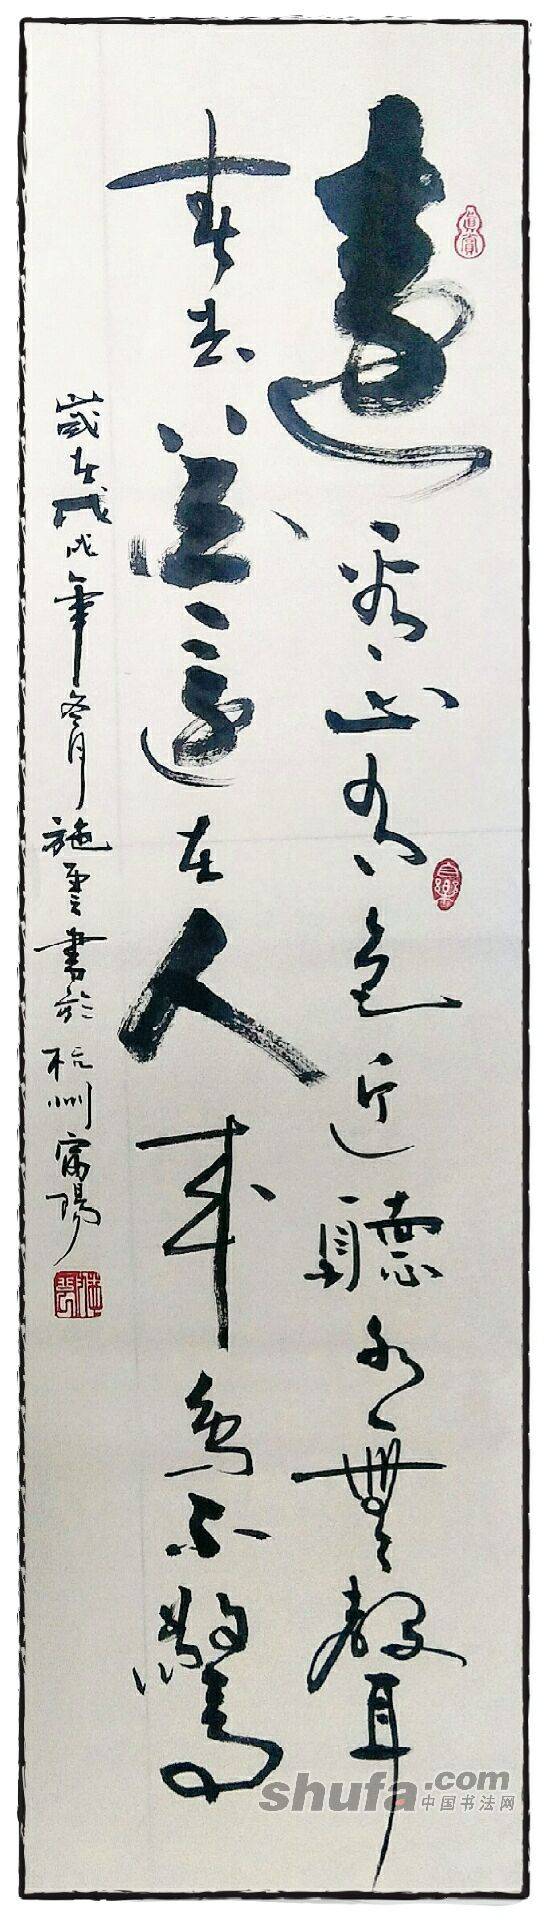 遠看山有色近聽水無聲
春去花還在人來鳥不驚
歲在戊戌年冬月施雲書於杭州富陽
shufa.com
中国书法网